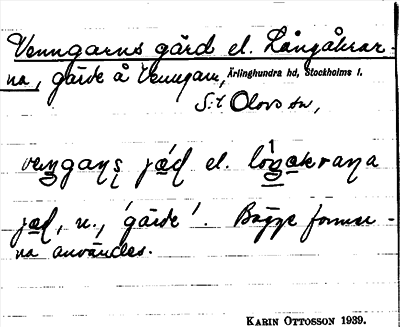 Venngarns gärd el. Långåkrar-
na, gärde å Venngarn, Ärlinghundra hd, Stockholms l.
S:t Olovs sn,
el.
n., 'gärde'. Bägge former-
na användes.
KARIN OTTOSSON 1939.